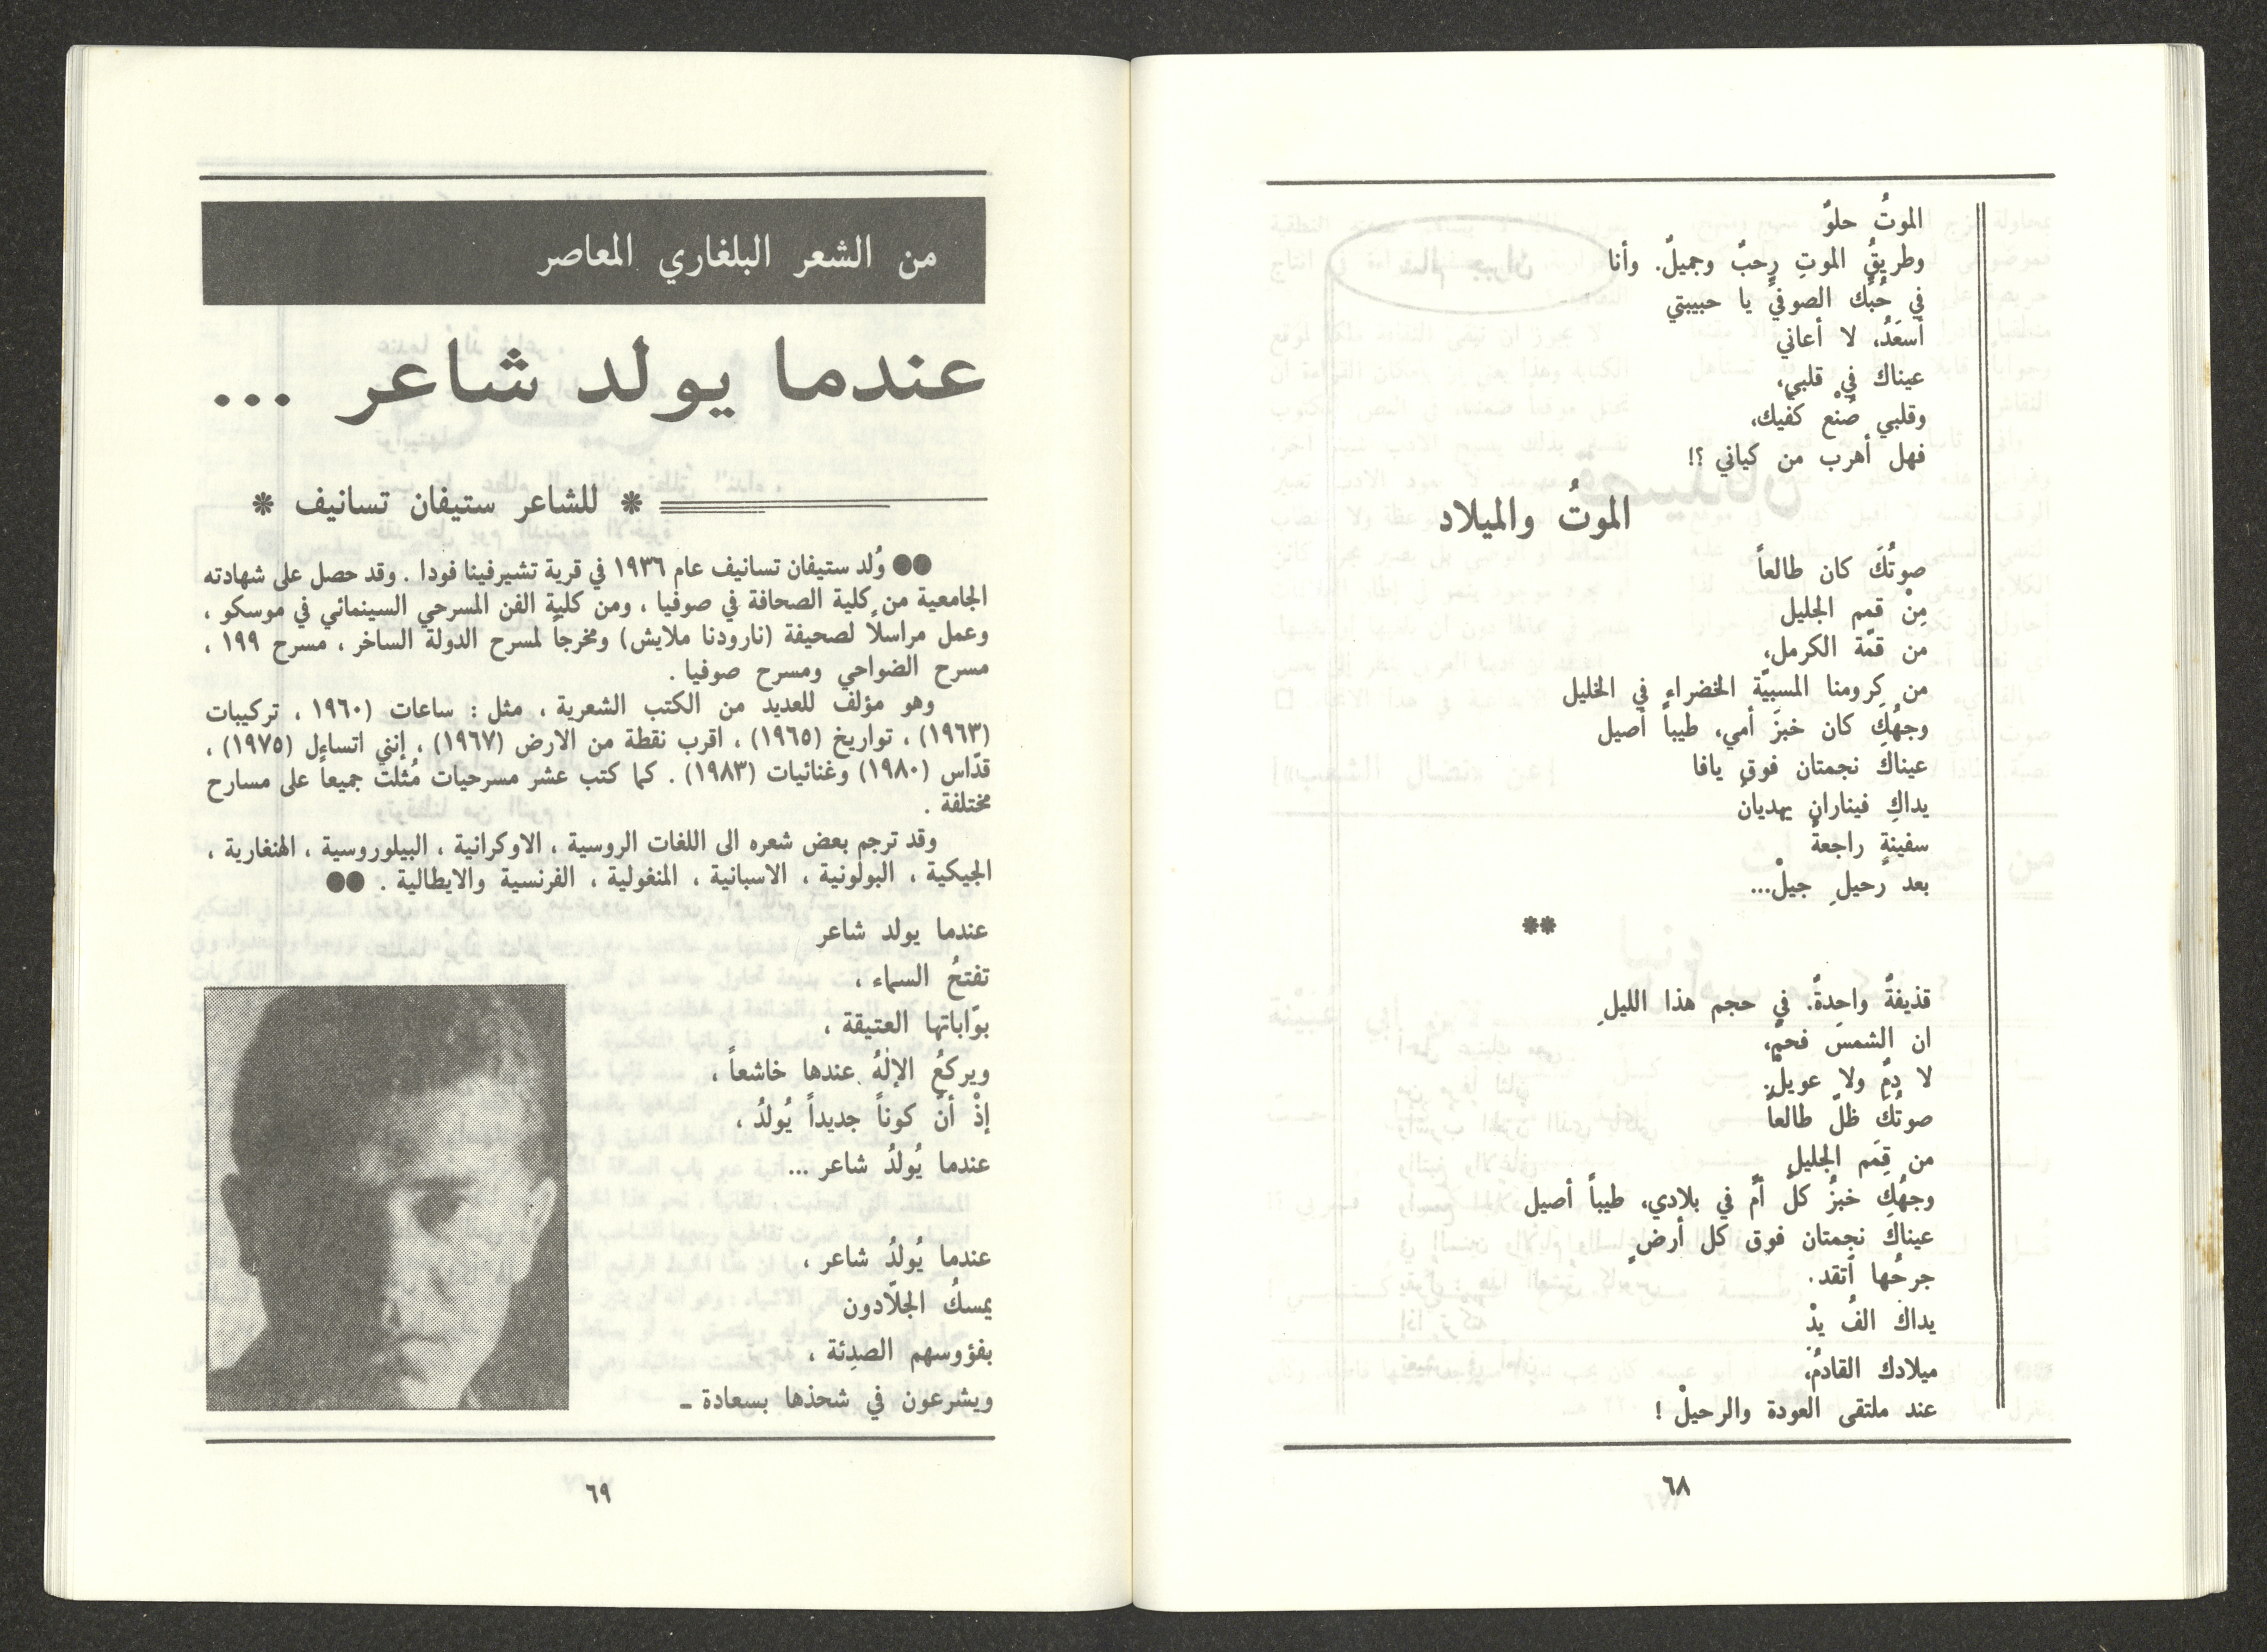 الموتُ حلوٌ
وطريقُ الموتِ رحبٌ وجميلٌ. وأنا
في حُبّك الصوفيّ يا حبيبتي
أسعَدُ، لا أعاني
عيناك في قلبي،
وقلبي صُنْع كفّيك،
فهل أهرب من كياني ؟!
الموتُ والميلاد
صوتُكَ كان طالعاً
مِنْ قمم الجليل
من قمّة الكرمل،
من كرومنا المسبيّة الخضراء في الخليل
وجهُكِ كان خبزَ أمي، طيباً أصيل
عيناكَ نجمتان فوق يافا
يداكِ فيناران يهديانْ
سفينةٍ راجعةً
بعد رحيلِ جيلْ...
**
قذيفةٌ واحدةٌ. في حجم هذا الليلِ
ان الشمسَ فحمٌ،
لا دمٌ ولا عويلْ.
صوتُكَ ظلّ طالعاً
من قِمَم الجليل
وجهُكِ خبزُ كلّ أمٍّ في بلادي، طيباً أصيل
عيناكِ نجمتان فوق كل أرضٍ
جرحُها اتّقد.
يداك الفُ يدْ
ميلادك القادمُ،
عند ملتقى العودة والرحيلْ !
٦٨
من الشعر البلغاري المعاصر
عندما يولد شاعر ...
* للشاعر ستيفان تسانيف *
●● وُلد ستيفان تسانيف عام ١٩٣٦ في قرية تشيرفينا فودا . وقد حصل على شهادته
الجامعية من كلية الصحافة في صوفيا ، ومن كلية الفن المسرحي السينمائي في موسكو ،
وعمل مراسلاً لصحيفة (نارودنا ملايش) ومخرجاً لمسرح الدولة الساخر ، مسرح ١٩٩ ،
مسرح الضواحي ومسرح صوفيا .
وهو مؤلف للعديد من الكتب الشعرية ، مثل : ساعات (١٩٦٠ ، تركيبات
(١٩٦٣) ، تواريخ (١٩٦٥) ، اقرب نقطة من الارض (١٩٦٧) ، إنني اتساءل (١٩٧٥) ،
قدّاس (١٩٨٠) وغنائيات (١٩٨٣) . كما كتب عشر مسرحيات مُثلت جميعاً على مسارح
مختلفة .
وقد ترجم بعض شعره الى اللغات الروسية ، الاوكرانية ، البيلوروسية ، الهنغارية ،
الجيكية ، البولونية ، الاسبانية ، المنغولية ، الفرنسية والايطالية . ●●
عندما يولد شاعر
تفتحُ السماء ،
بوّاباتها العتيقة ،
ويركعُ الإلهُ عندها خاشعاً ،
إذْ أنّ كوناً جديداً يُولدُ ،
عندما يُولدُ شاعر ...
عندما يُولدُ شاعر ،
يمسكُ الجلّادون
بفؤوسهم الصدِئة ،
ويشرعون في شحذها بسعادة ـ
٦٩